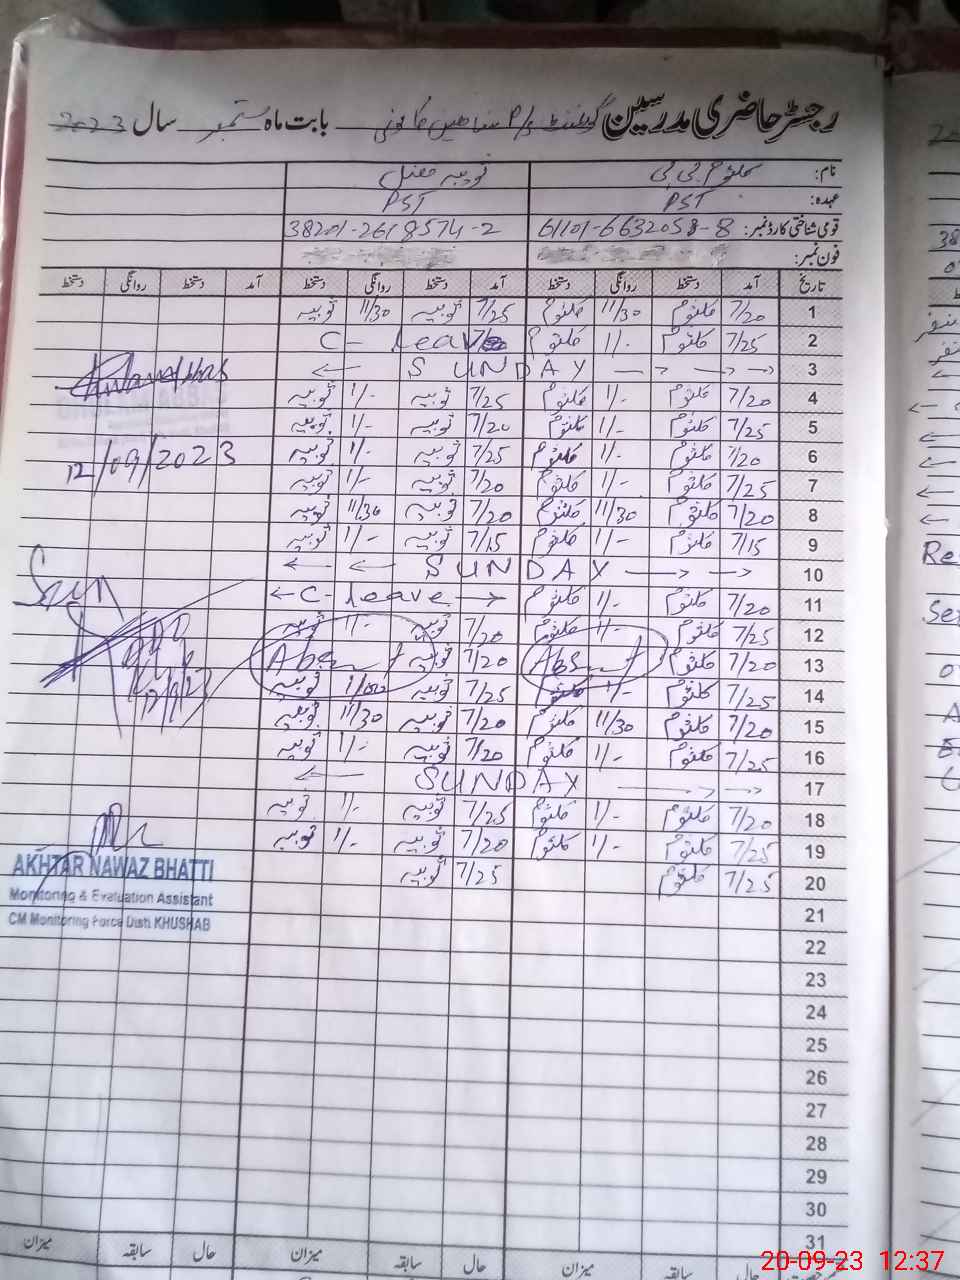 رجسٹر حاضری مدرسین گورنمنٹ P/S شاھین کالونی بابت ماہ ستمبر سال 2023
نام: کلثوم بی بی ثوبیہ
عہدہ: PST PST
قومی شناختی کارڈ نمبر: 61101-6632058-8 38201-2618574-2
فون نمبر:
تاریخ آمد دستخط روانگی دستخط آمد دستخط روانگی دستخط آمد دستخط روانگی دستخط
1 7/20 کلثوم 11/30 کلثوم 7/25 ثوبیہ 11/30 ثوبیہ
2 7/25 کلثوم 1/- کلثوم C- leave
3 SUNDAY
4 7/20 کلثوم 1/- کلثوم 7/25 ثوبیہ 1/- ثوبیہ
5 7/25 کلثوم 1/- کلثوم 7/20 ثوبیہ 1/- ثوبیہ
6 7/20 کلثوم 1/- کلثوم 7/25 ثوبیہ 1/- ثوبیہ
7 7/25 کلثوم 1/- کلثوم 7/20 ثوبیہ 1/- ثوبیہ
8 7/20 کلثوم 11/30 کلثوم 7/20 ثوبیہ 11/30 ثوبیہ
9 7/15 کلثوم 1/- کلثوم 7/15 ثوبیہ 1/- ثوبیہ
10 SUNDAY
11 7/20 کلثوم 1/- کلثوم C- leave
12 7/25 کلثوم 1/- کلثوم 7/20 ثوبیہ 1/- ثوبیہ
13 7/20 کلثوم Absent 7/20 ثوبیہ Absent
14 7/25 کلثوم 1/- کلثوم 7/25 ثوبیہ ثوبیہ
15 7/20 کلثوم 11/30 کلثوم 7/20 ثوبیہ 11/30 ثوبیہ
16 7/25 کلثوم 1/- کلثوم 7/20 ثوبیہ 1/- ثوبیہ
17 SUNDAY
18 7/20 کلثوم 1/- کلثوم 7/25 ثوبیہ 1/- ثوبیہ
19 7/25 کلثوم 1/- کلثوم 7/20 ثوبیہ 1/- ثوبیہ
20 7/25 کلثوم 7/25 ثوبیہ
21
22
23
24
25
26
27
28
29
30
31
حال سابقہ میزان حال سابقہ میزان حال سابقہ میزان
12/09/2023
AKHTAR NAWAZ BHATTI
Monitoring & Evaluation Assistant
CM Monitoring Force Distt. KHUSHAB
20-09-23 12:37